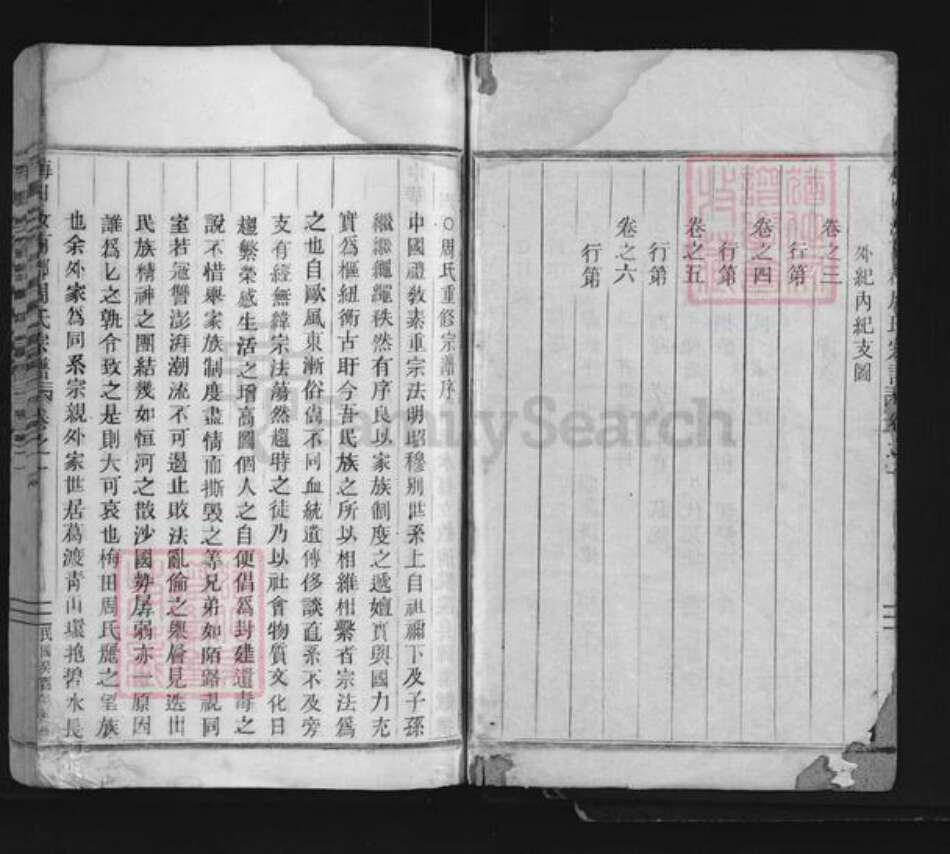 外紀內紀支圖
卷之三
行第
卷之四
行第
卷之五
行第
卷之六
行第
〇周氏重修宗譜序
中國禮敎素重宗法明昭穆別世系上自祖禰下及子孫
繼繼繩繩秩然有序良以家族制度之遞嬗實與國力充
實爲樞紐衡古盱今吾民族之所以相維相繫者宗法爲
之也自歐風東漸俗尙不同血統遺傳侈談直系不及旁
支有經無緯宗法蕩然趨時之徒乃以社會物質文化日
趨繁榮感生活之增高圖個人之自便倡爲封建遺毒之
說不惜舉家族制度盡情而撕毀之等兄弟如陌路視同
室若寇讐澎湃潮流不可遏止敗法亂倫之舉層見迭出
民族精神之團結幾如恒河之散沙國勢孱弱亦一原因
誰爲之孰令致之是則大可哀也梅田周氏麗之望族
也余外家爲同系宗親外家世居葛渡靑山環抱碧水長
周氏宗譜
卷之一
民國
FamilySearch